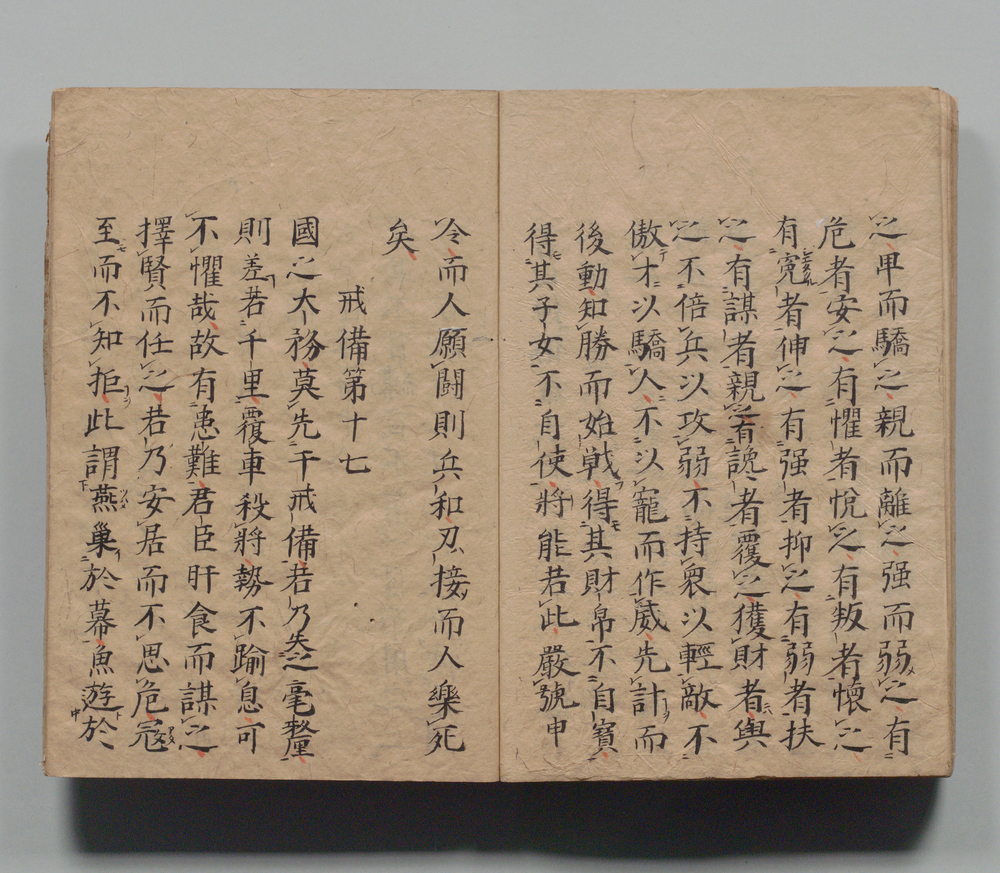 之卑而驕之親而離之强而弱之有
危者安之有懼者悅之有叛者懷之
有寃者伸之有强者抑之有弱者扶
之有謀者親之有讒者覆之獲財者與
之不倍兵以攻弱不持衆以輕敵不
傲才以驕人不以寵而作威先計而
後動知勝而始戦得其財帛不自寳
得其子女不自使將能若此嚴號申
令而人願鬪則兵和刃接而人樂死
矣
戒備第十七
國之大務莫先于戒備若乃失之毫釐
則差若千里覆車殺將勢不踰息可
不懼哉故有患難君臣旰食而謀之
擇賢而任之若乃安居而不思危寇
至而不知拒此謂燕巢於幕魚遊於